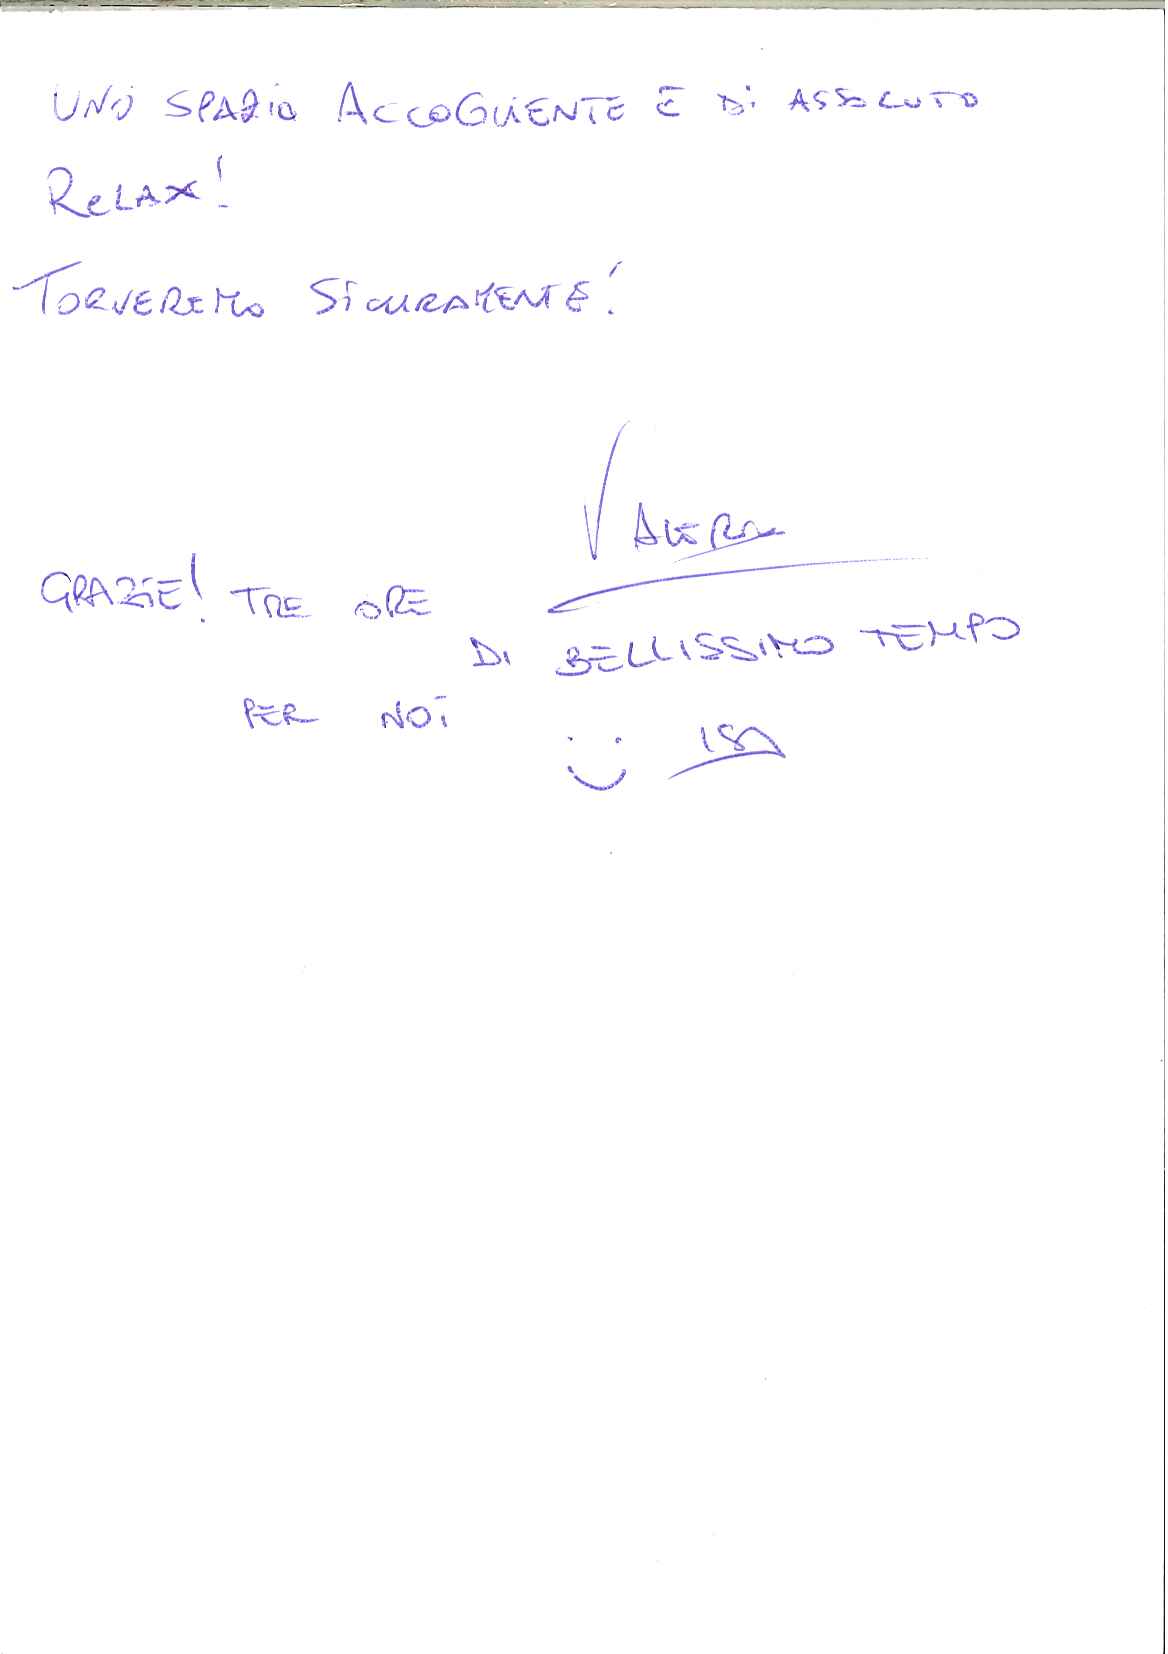 UNO SPAZIO ACCOGLIENTE E DI ASSOLUTO
RELAX!
TORNEREMO SICURAMENTE!
VALERIA
GRAZIE! TRE ORE
DI BELLISSIMO TEMPO
PER NOI
ISA